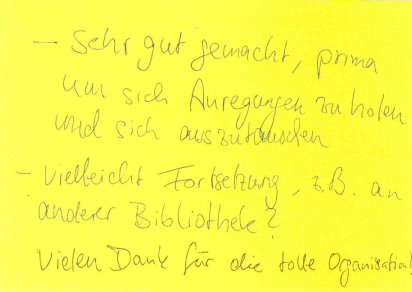 - Sehr gut gemacht, prima
um sich Anregungen zu holen
und sich auszutauschen
- Vielleicht Fortsetzung, z.B. an
anderer Bibliothek?
Vielen Dank für die tolle Organisation!